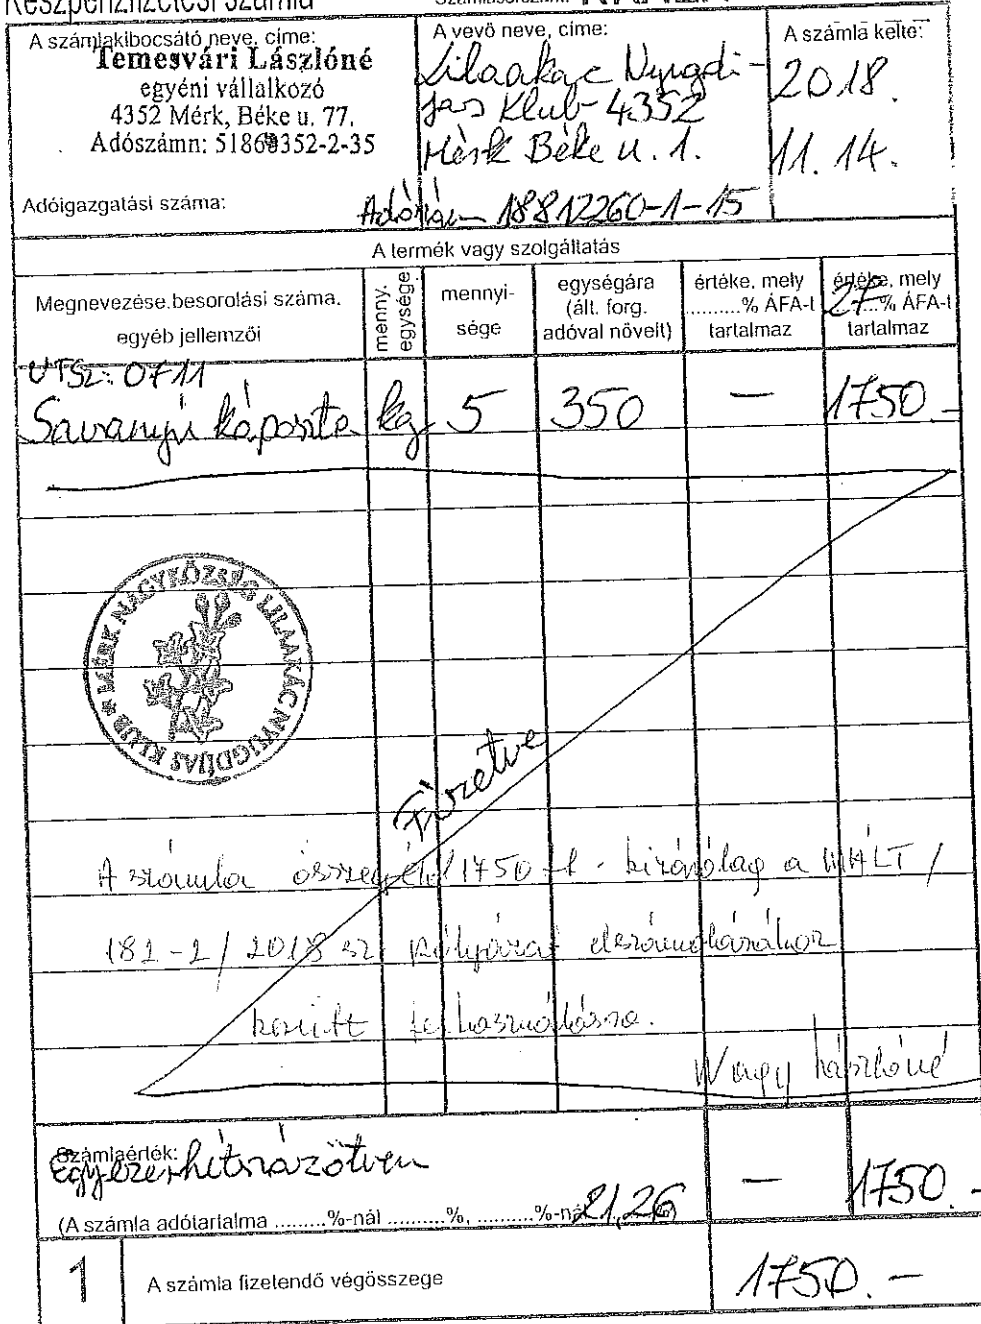 Készpénzfizetési számla
A számlakibocsátó neve, címe:
Temesvári Lászlóné
egyéni vállalkozó
4352 Mérk, Béke u. 77.
Adószámn: 51860352-2-35
Adóigazgatási száma:
A vevő neve, címe:
Lilaakác Nyugdí-
jas Klub 4352
Mérk Béke u. 1.
Adószám 18812260-1-15
A számla kelte:
2018.
11.14.
A termék vagy szolgáltatás
Megnevezése. besorolási száma.
egyéb jellemzői
menny.
egysége.
mennyi-
sége
egységára
(ált. forg.
adóval növelt)
értéke, mely
..........% ÁFA-t
tartalmaz
értéke, mely
27....% ÁFA-t
tartalmaz
VTSZ: 0711
Savanyú káposzta kg 5 350 — 1750.-
MÉRK NAGYKÖZSÉG LILAAKÁC NYUGDÍJAS KLUB
Fizetve
A számla összegéből 1750 -t - kizárólag a
182-2/2018 sz pályázat elszámolásakor
került felhasználásra.
Nagy Lászlóné
Számlaérték:
Egyezerhétszázötven — 1750.-
(A számla adótartalma .........%-nál ..........%, ..........%-nál 21,26
1 A számla fizetendő végösszege 1750.—